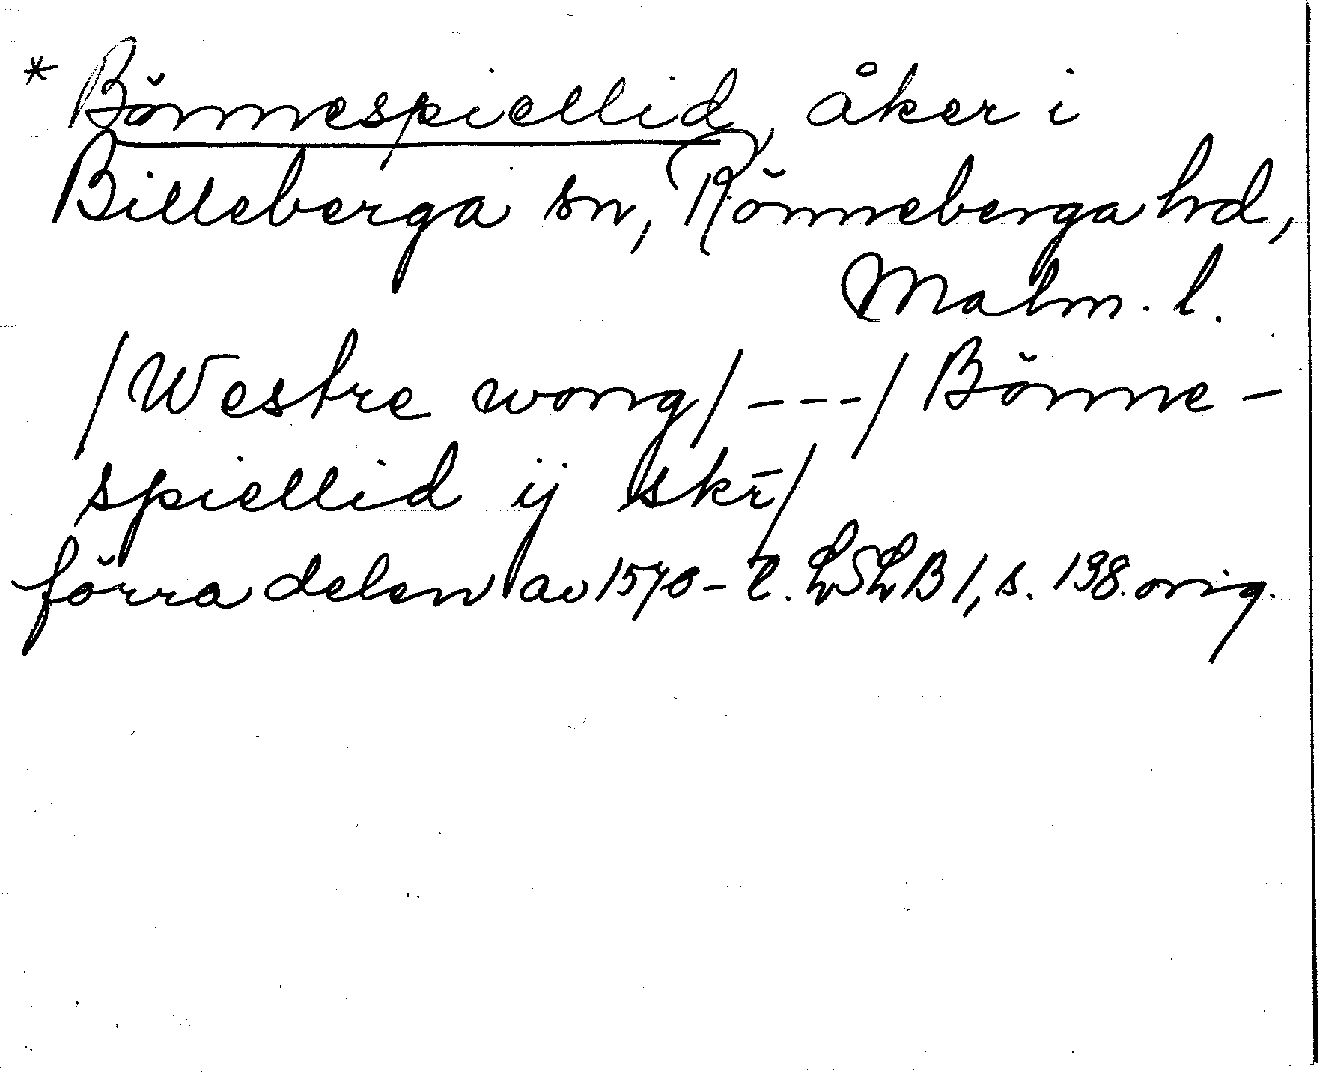 * Bönnespiellid, åker i
Billeberga sn, Rönneberga hd,
Malm. l.
/Westre wong/ --- / Bönne-
spiellid ij skr̄/
förra delen av 1570-t. LSLB 1, s. 198. orig.